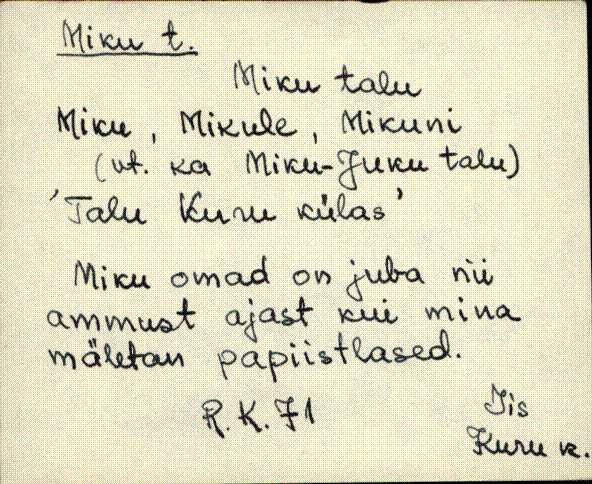 Miku t.
Miku talu
Miku, Mikule, Mikuni
(vt. ka Miku-Juku talu)
'Talu Kuru külas'
Miku omad on juba nii
ammust ajast kui mina
mäletan papiistlased.
R.K. 71
Iis
Kuru k.